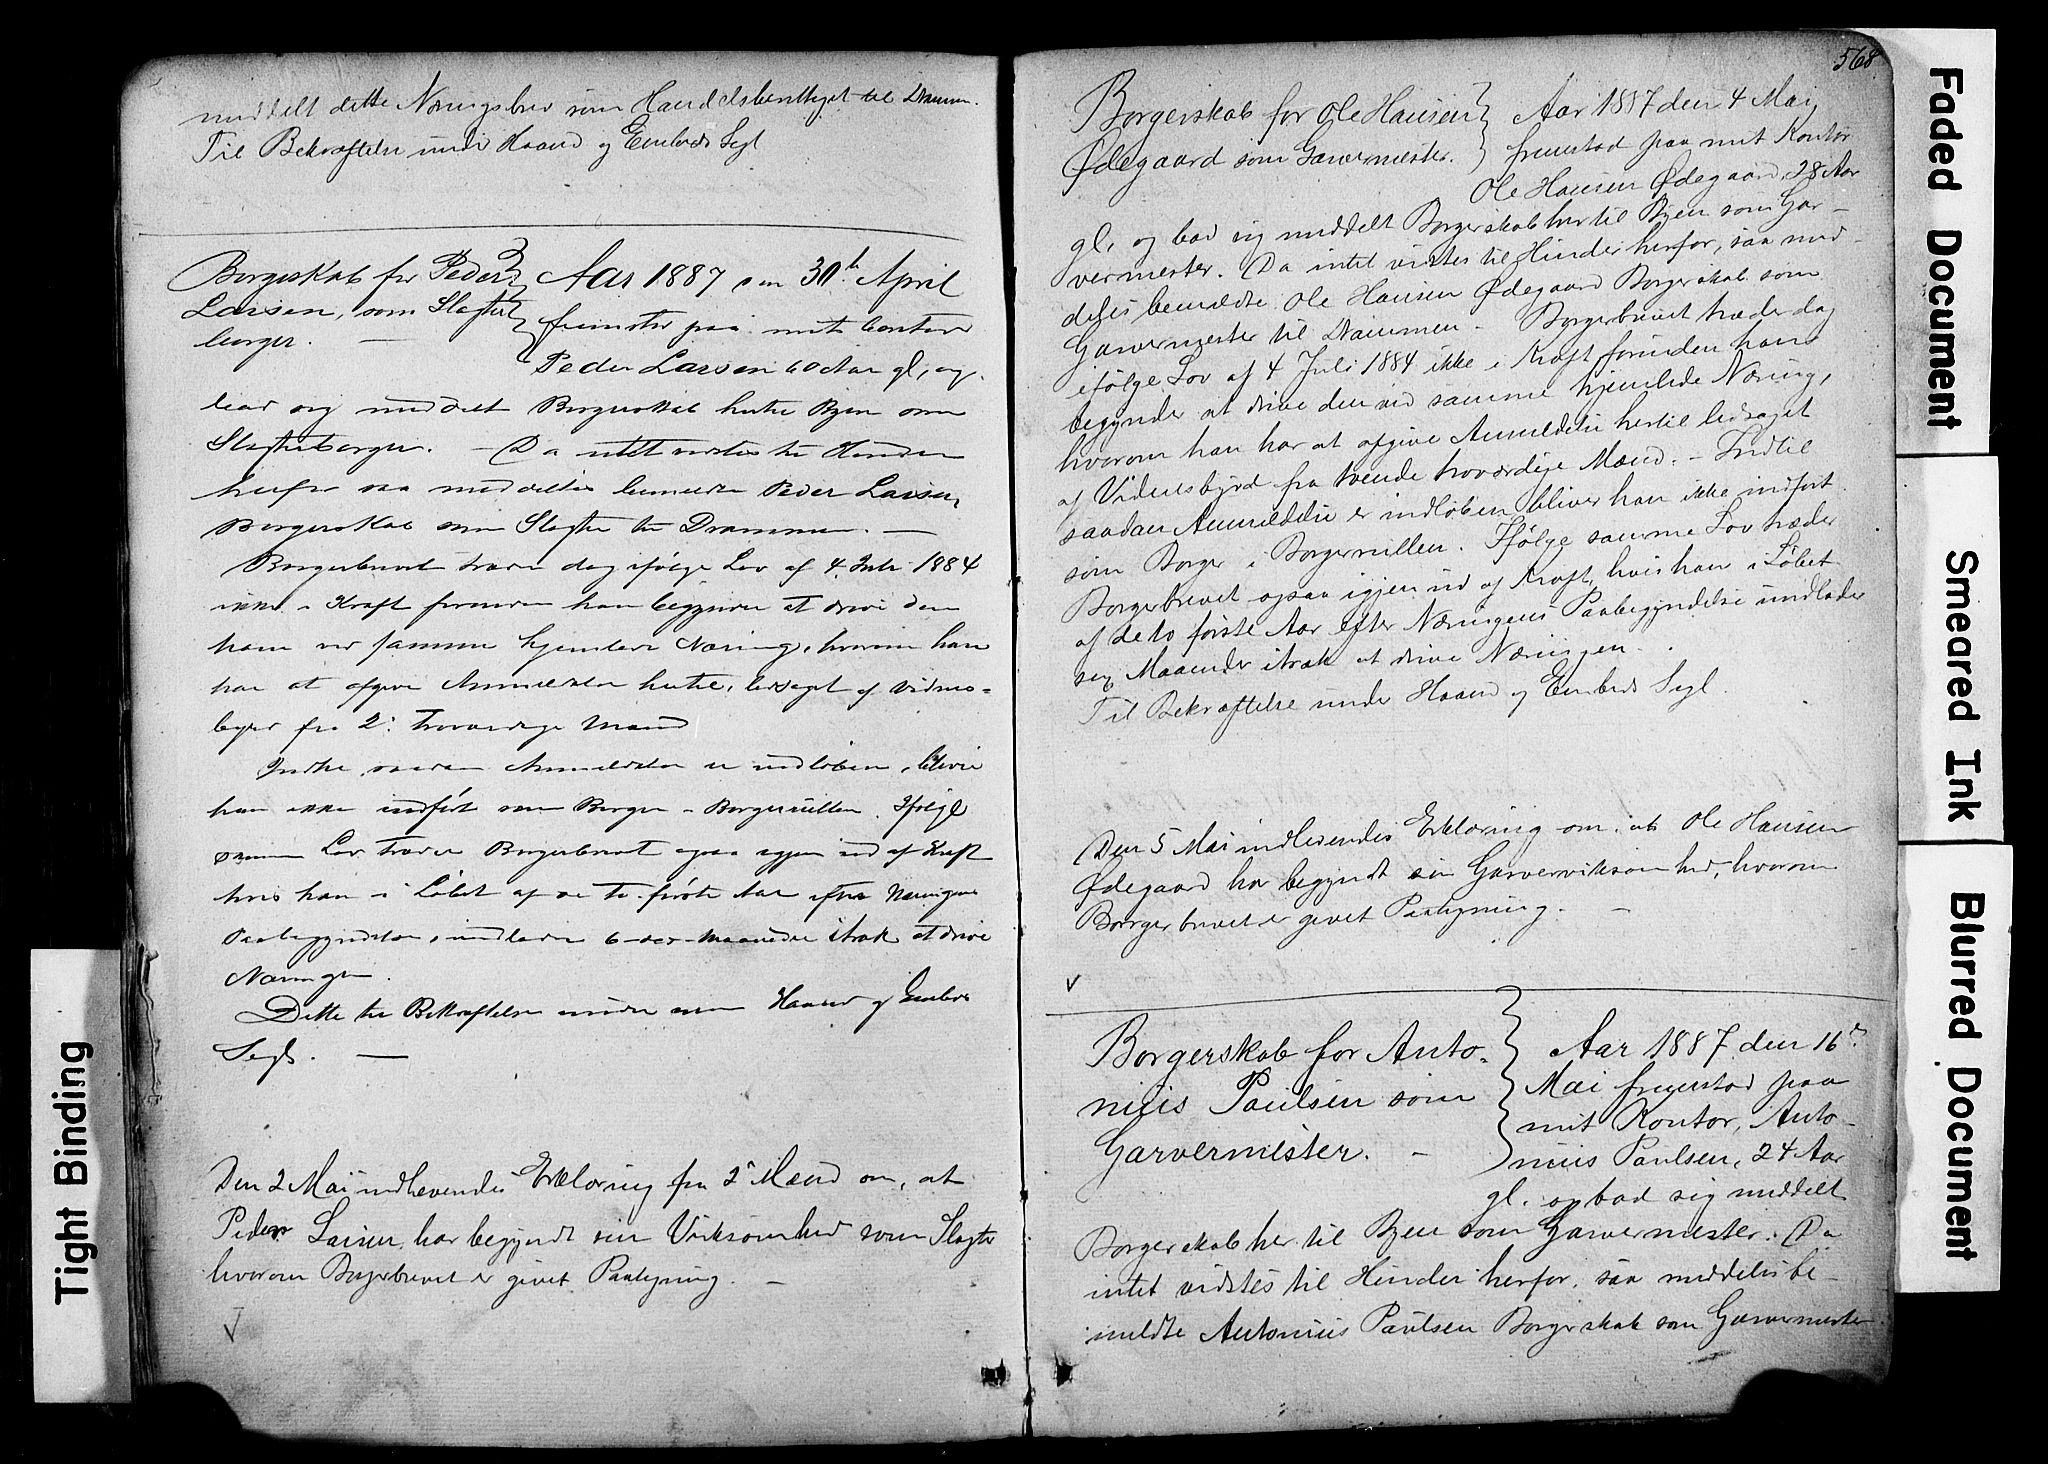 meddelt dette Næringsbrev som Handelsberettiget til Dramm.
Til Bekræftelse under Haand og Embeds Segl
Borgerskab for Peder } Aar 1887 den 30th April
Larsen, som Slagter } fremstod paa mit Contor
borger. — Peder Larsen 60 Aar gl, og
bad sig meddelt Borgerskab hertil Byen som
Slagterborger. — Da intet vidstes til Hinder
herfor saa meddeltes bemeldte Peder Larsen,
Borgerskab som Slagter til Drammen. —
Borgerbrevet træder dog ifølge Lov af 4. Juli 1884
ikke i Kraft forinden han begynder at drive den
ham ved samme hjemlede Næring, hvorom han
har at afgive Anmeldelse hertil, ledsaget af Vidnes-
byrd fra 2: troværdige Mænd
Indtil saadan Anmeldelse er indløben, bliver
han ikke indført som Borger i Borgerrullen. Ifølge
samme Lov træder Borgerbrevet ogsaa igjen ud af Kraft
hvis han i Løbet af de to første Aar efter Næringens
Paabegyndelse, undlader 6-sex-Maaneder itræk at drive
Næringen.
Dette til Bekræftelse under min Haand og Embeds
Segl. —
Den 2 Mai indlevendes Erklæring fra 2 Mænd om, at
Peder Larsen har begyndt sin Virksomhed som Slagter
hvorom Borgerbrevet er givet Paategning. —
V
568.
Borgerskab for Ole Hansen } Aar 1887 den 4 Mai
Ødegaard som Garvermester. } fremstod paa mit Kontor
Ole Hansen Ødegaard, 28 Aar
gl, og bad sig meddelt Borgerskab her til Byen som Gar-
vermester. Da intet vidstes til Hinder herfor, saa med-
deles bemeldte Ole Hansen Ødegaard Borgerskab som
Garvermester til Drammen. Borgerbrevet træder dog
ifølge Lov af 4 Juli 1884 ikke i Kraft forinden han
begynder at drive den ved samme hjemlede Næring,
hvorom han har at afgive Anmeldelse hertil ledsaget
af Vidnesbyrd fra tvende troværdige Mænd. — Indtil
saadan Anmeldelse er indløben bliver han ikke indført
som Borger i Borgerrullen. Ifølge samme Lov træder
Borgerbrevet ogsaa igjen ud af Kraft, hvis han i Løbet
af de to første Aar efter Næringens Paabegyndelse undlader
sex Maaneder itræk at drive Næringen.
Til Bekræftelse under Haand og Embeds Segl.
Den 5 Mai indlevendes Erklæring om, at Ole Hansen
Ødegaard har begyndt sin Garvervirksomhed, hvorom
Borgerbrevet er givet Paategning. —
V
Borgerskab for Anto- } Aar 1887 den 16de
nius Paulsen som } Mai fremstod paa
Garvermester. — } mit Kontor, Anto-
nius Paulsen, 24 Aar
gl. og bad sig meddelt
Borgerskab her til Byen som Garvermester. Da
intet vidstes til Hinder herfor, saa meddeles be-
meldte Antonius Paulsen Borgerskab som Garvermester
Tight Binding
Faded Document
Smeared Ink
Blurred Document